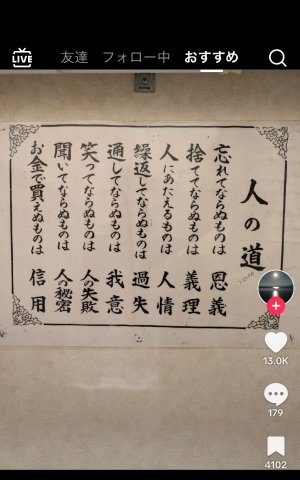 LIVE
友達 フォロー中 おすすめ
人の道
忘れてならぬものは 恩義
捨ててならぬものは 義理
人にあたえるものは 人情
繰返してならぬものは 過失
通してならぬものは 我意
笑ってならぬものは 人の失敗
聞いてならぬものは 人の秘密
お金で買えぬものは 信用
13.0K
179
4102